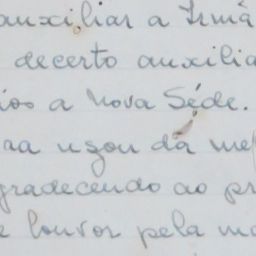 auxiliar a Irmã
decerto auxilia
a Nova Séde.
uzou da
gradecendo ao pr
louvor pela ma